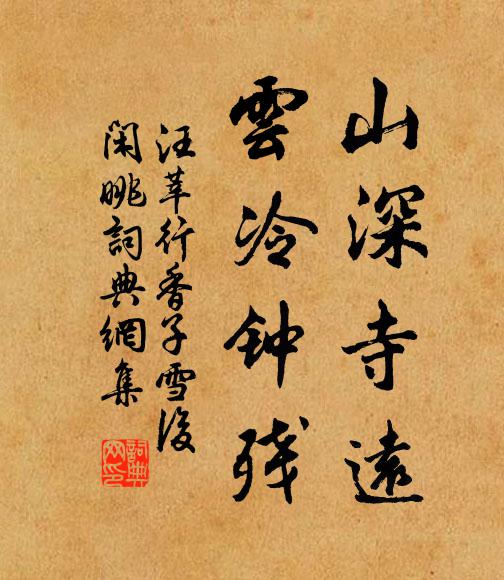 山深寺遠
雲冷钟残
汪莘行香子雪後
闲眺詞典網集
詞典网印